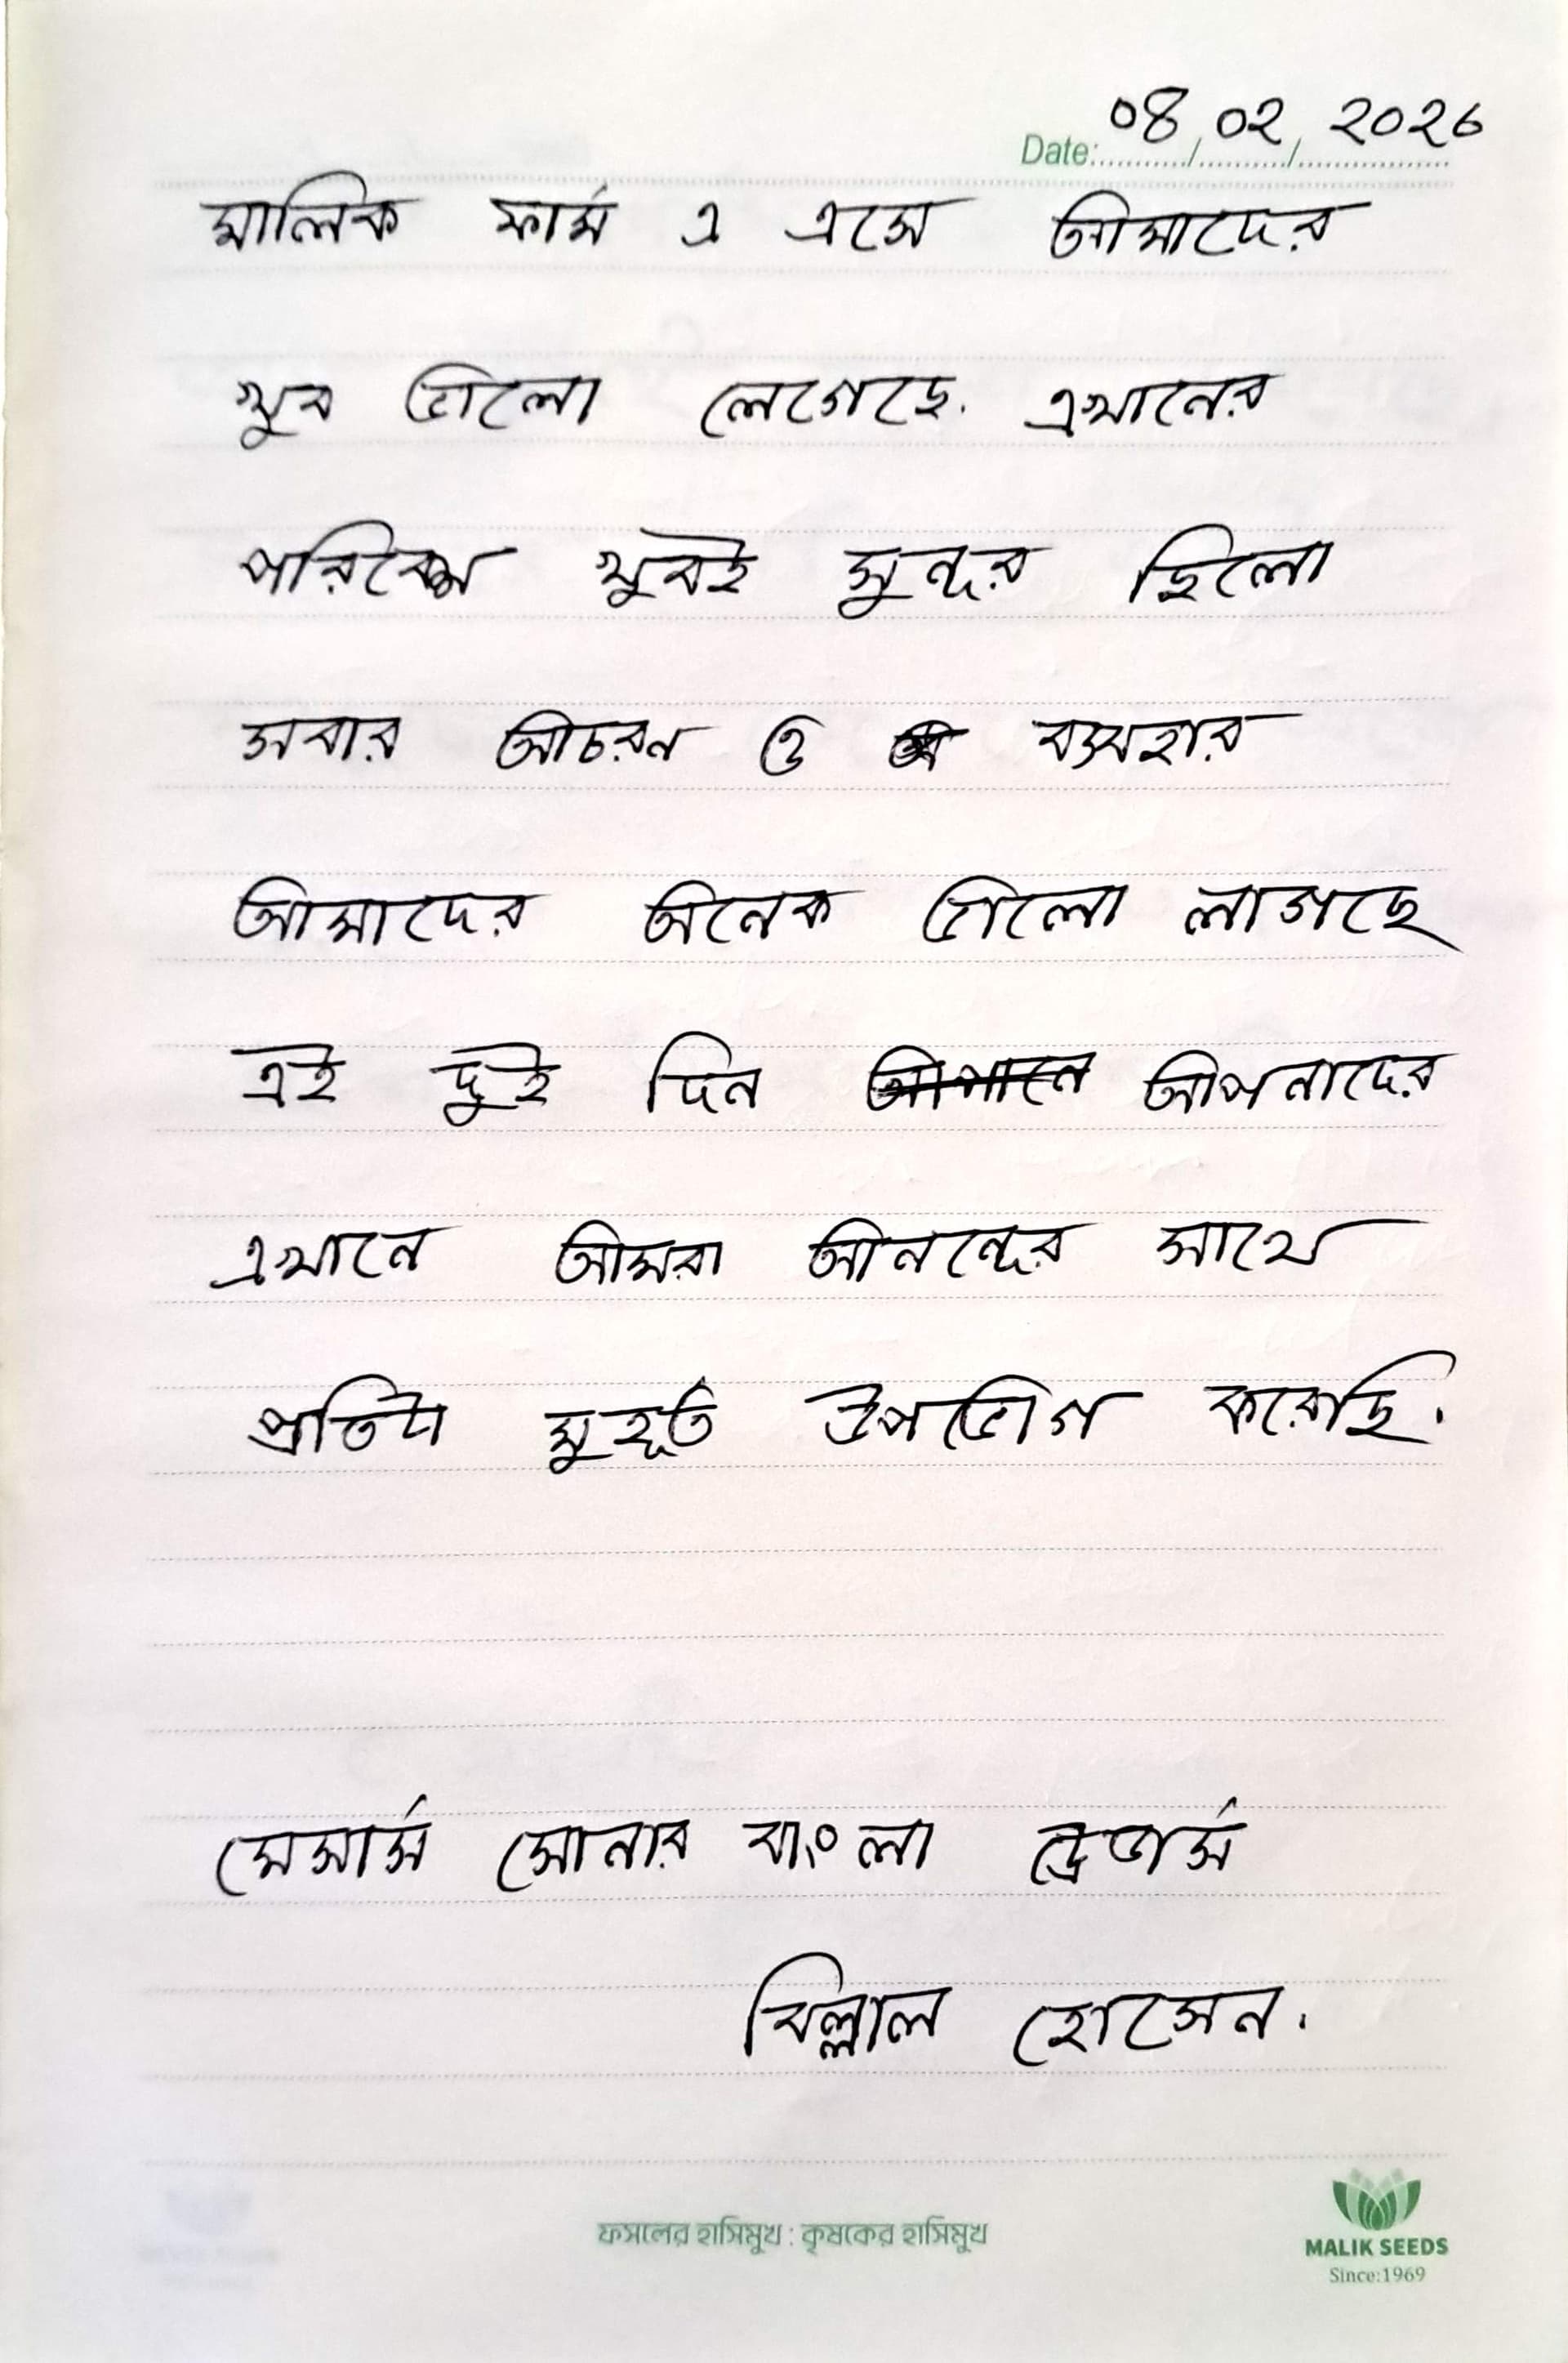 ০৪ ০২ ২০২৬
Date:.........../.........../..................
মালিক ফার্ম এ এসে আমাদের
খুব ভালো লেগেছে. এখানের
পরিবেশ খুবই সুন্দর ছিলো
সবার আচরন ও ব্যবহার
আমাদের অনেক ভালো লাগছে
এই দুই দিন আপনাদের
এখানে আমরা আনন্দের সাথে
প্রতিটা মুহূর্ত উপভোগ করেছি.
মেসার্স সোনার বাংলা ট্রেডার্স
বিল্লাল হোসেন.
ফসলের হাসিমুখ : কৃষকের হাসিমুখ
MALIK SEEDS
Since:1969